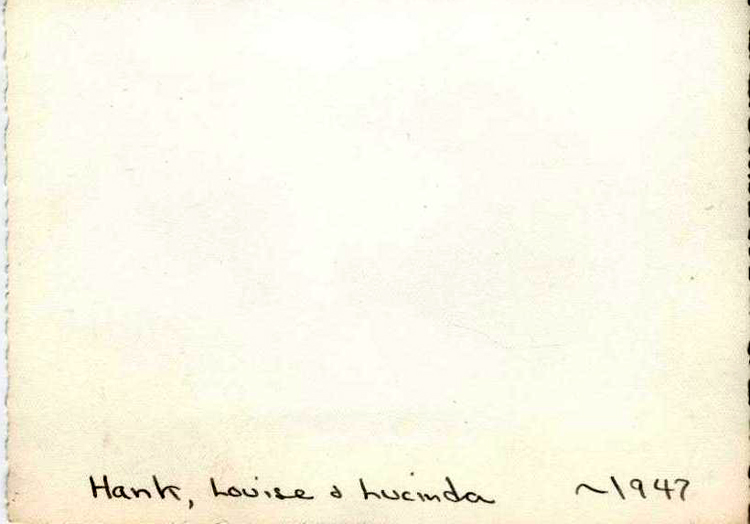 Hank, Louise & Lucinda ~1947